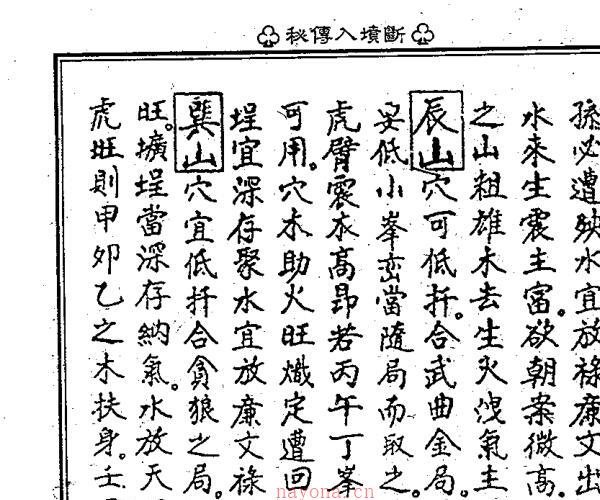 秘傳入墳斷
孫必遭殃水宜放祿廉文出
水來生震主富。欲朝案微高。
之山粗雄木去生火洩氣主
辰山穴可低扦。合武曲金局。
妥低小峯巒當隨局而取之。
虎臂震高昂若丙午丁峯
可用。穴木助火旺熾定遭回
埕宜深存聚水宜放廉文祿
巽山穴宜低扦合貪狼之局。
旺。壙埕當深存納氣。水放天
虎旺則甲卯乙之木扶身。壬
nayona.cn